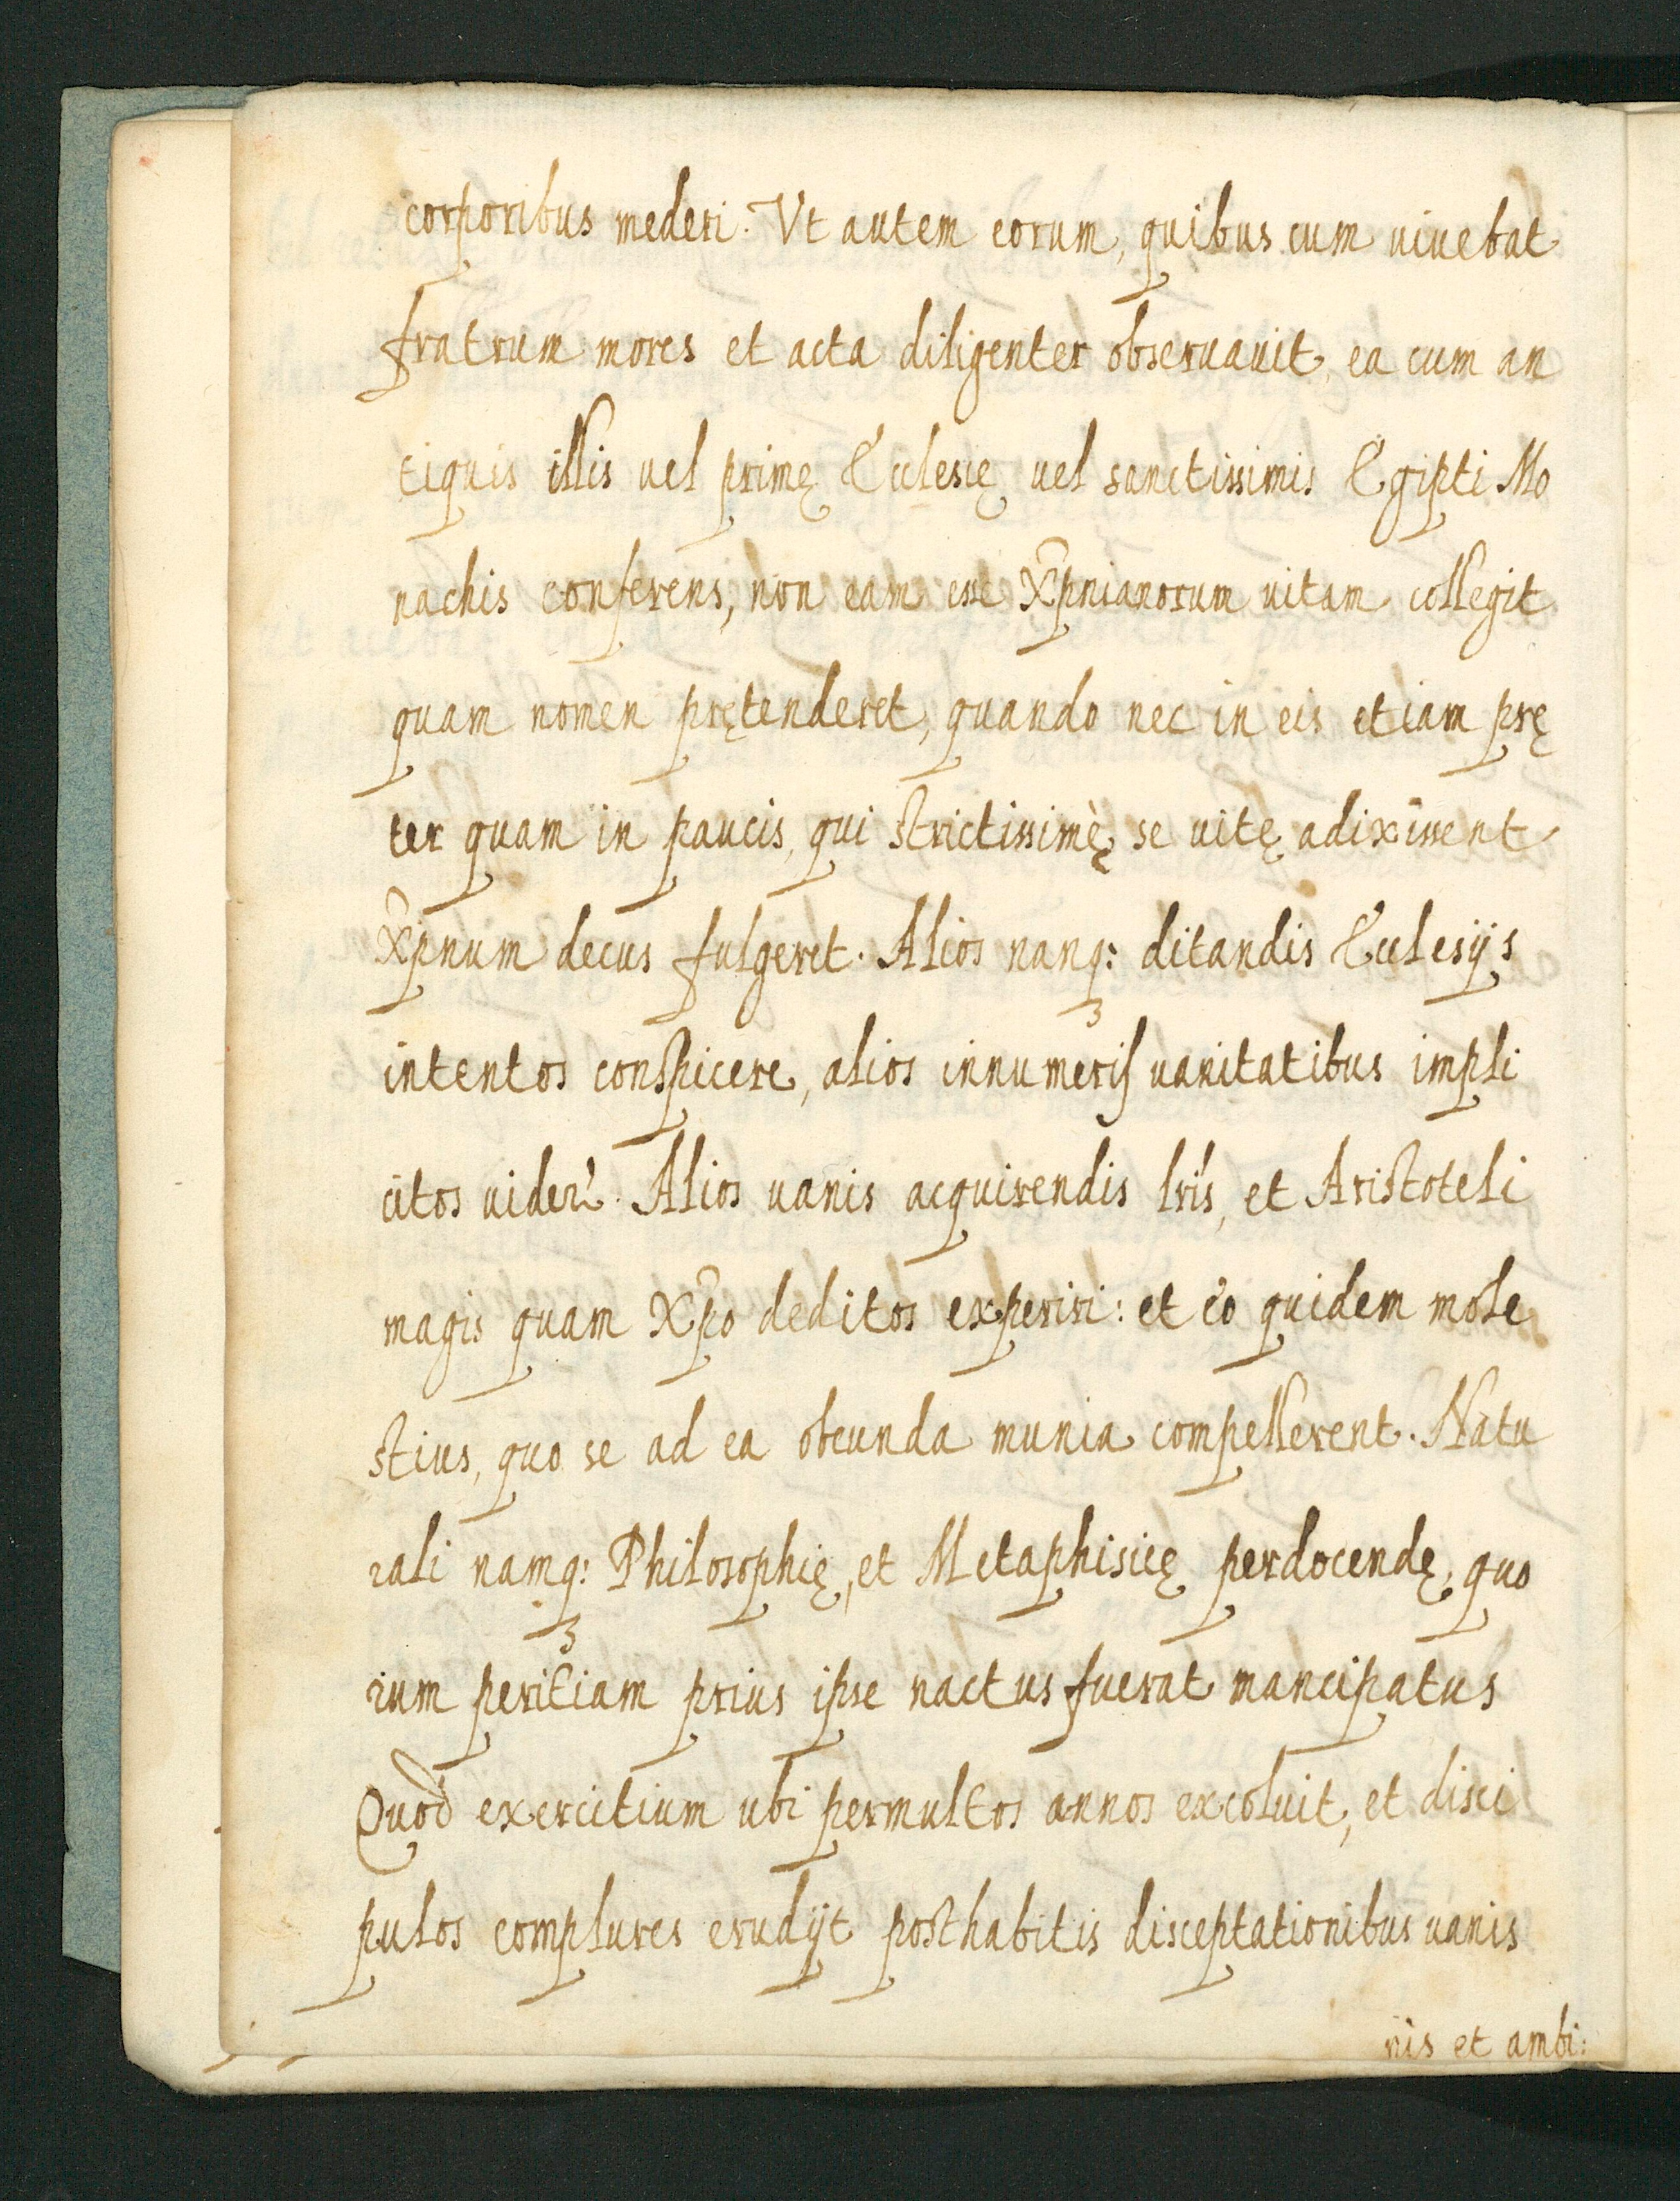 corporibus mederi. Vt autem eorum, quibus cum uiuebat
fratrum mores et acta diligenter obseruauit, ea cum an
tiquis illis uel primę Ecclesię uel sanctissimis Egipti Mo
nachis conferens, non eam esse Xp̃nianorum uitam collegit
quam nomen prętenderet, quando nec in eis etiam prę
ter quam in paucis, qui strictissimè se uitę adixissent
Xp̃num decus fulgeret. Alios nanq: ditandis Ecclesijs
intentos conspicere, alios innumeris uanitatibus impli
citos uider̃. Alios uanis acquirendis lr̃is, et Aristoteli
magis quam Xp̃o deditos experiri: et eò quidem mole
stius, quo se ad ea obeunda munia compellerent. Natu
rali namq: Philosophię, et Metaphisicę perdocendę, quo
rum peritiam prius ipse nactus fuerat mancipatus
Quod exercitium ubi permultos annos excoluit, et disci
pulos complures erudijt posthabitis disceptationibus uanis
nis et ambi: